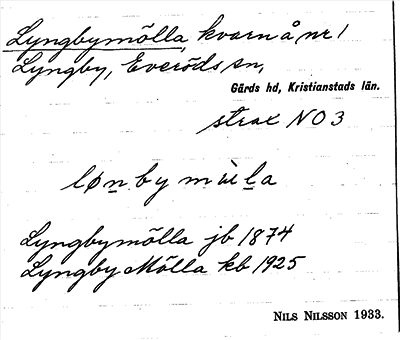 Lyngbymölla, kvarn å nr 1
Lyngby, Everöds sn,
Gärds hd, Kristianstads län.
strax NO 3
Lyngbymölla jb 1874
Lyngby Mölla kb 1925
NILS NILSSON 1933.